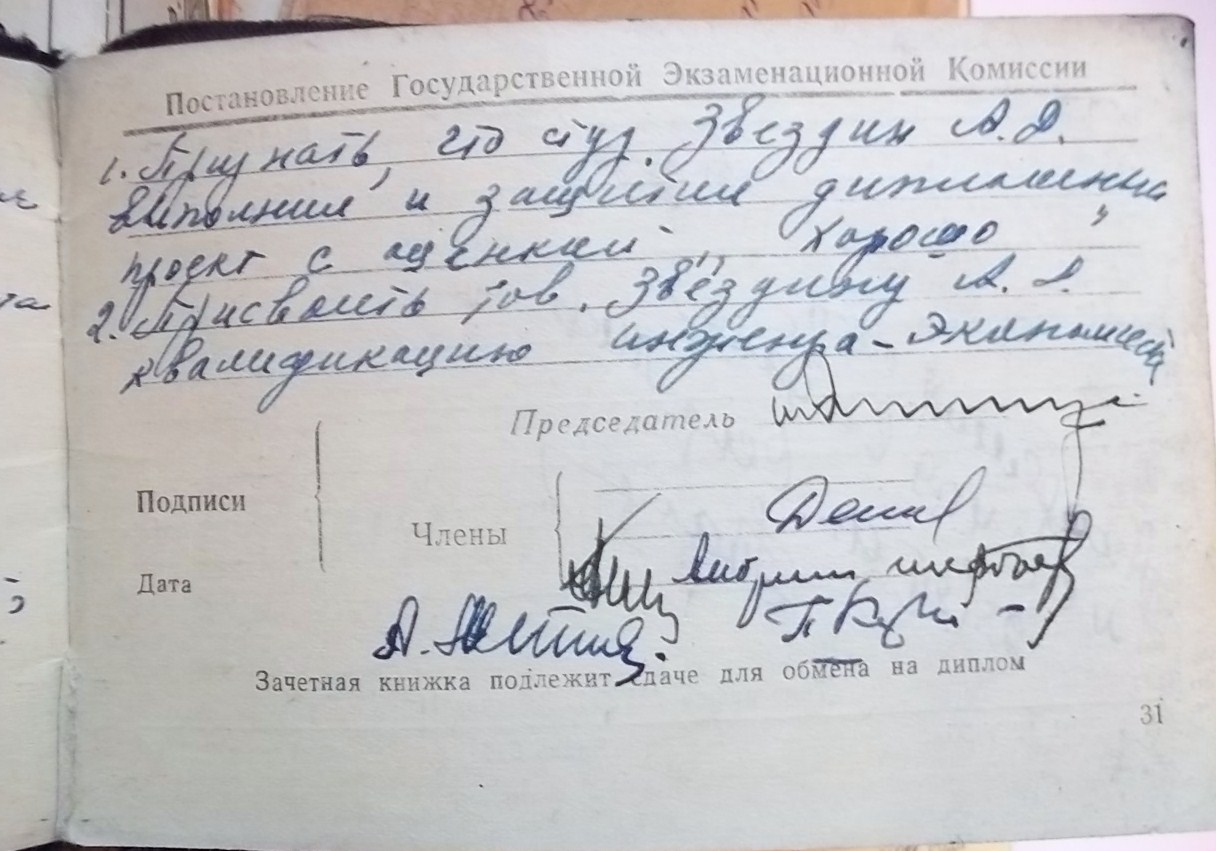 Постановление Государственной Экзаменационной Комиссии
1. Признать, что студ. Звездин А. Д.
выполнил и защитил дипломный
проект с оценкой „хорошо"
2. Присвоить тов. Звездину А. Д.
квалификацию инженера-экономиста
Председатель
Подписи
Члены
Дата
Зачетная книжка подлежит сдаче для обмена на диплом
31